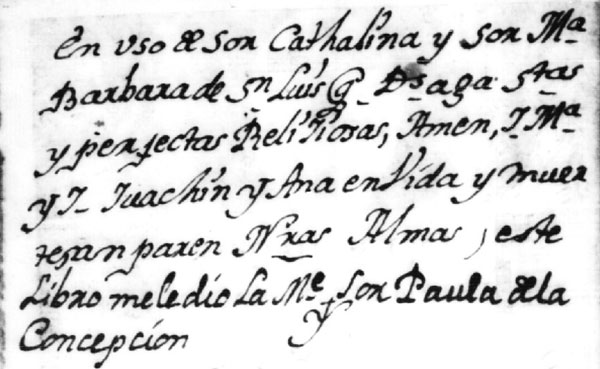 En uso de sor Cathalina y sor Mª
Barbara de Sn Luis q Ds aga stas
y perfectas Relijiosas, Amen, J. Mª
y J Juachin y Ana en Vida y muer
tesan paren Nras Almas, este
Libro meledio La Me Sor Paula de la
Concepcion